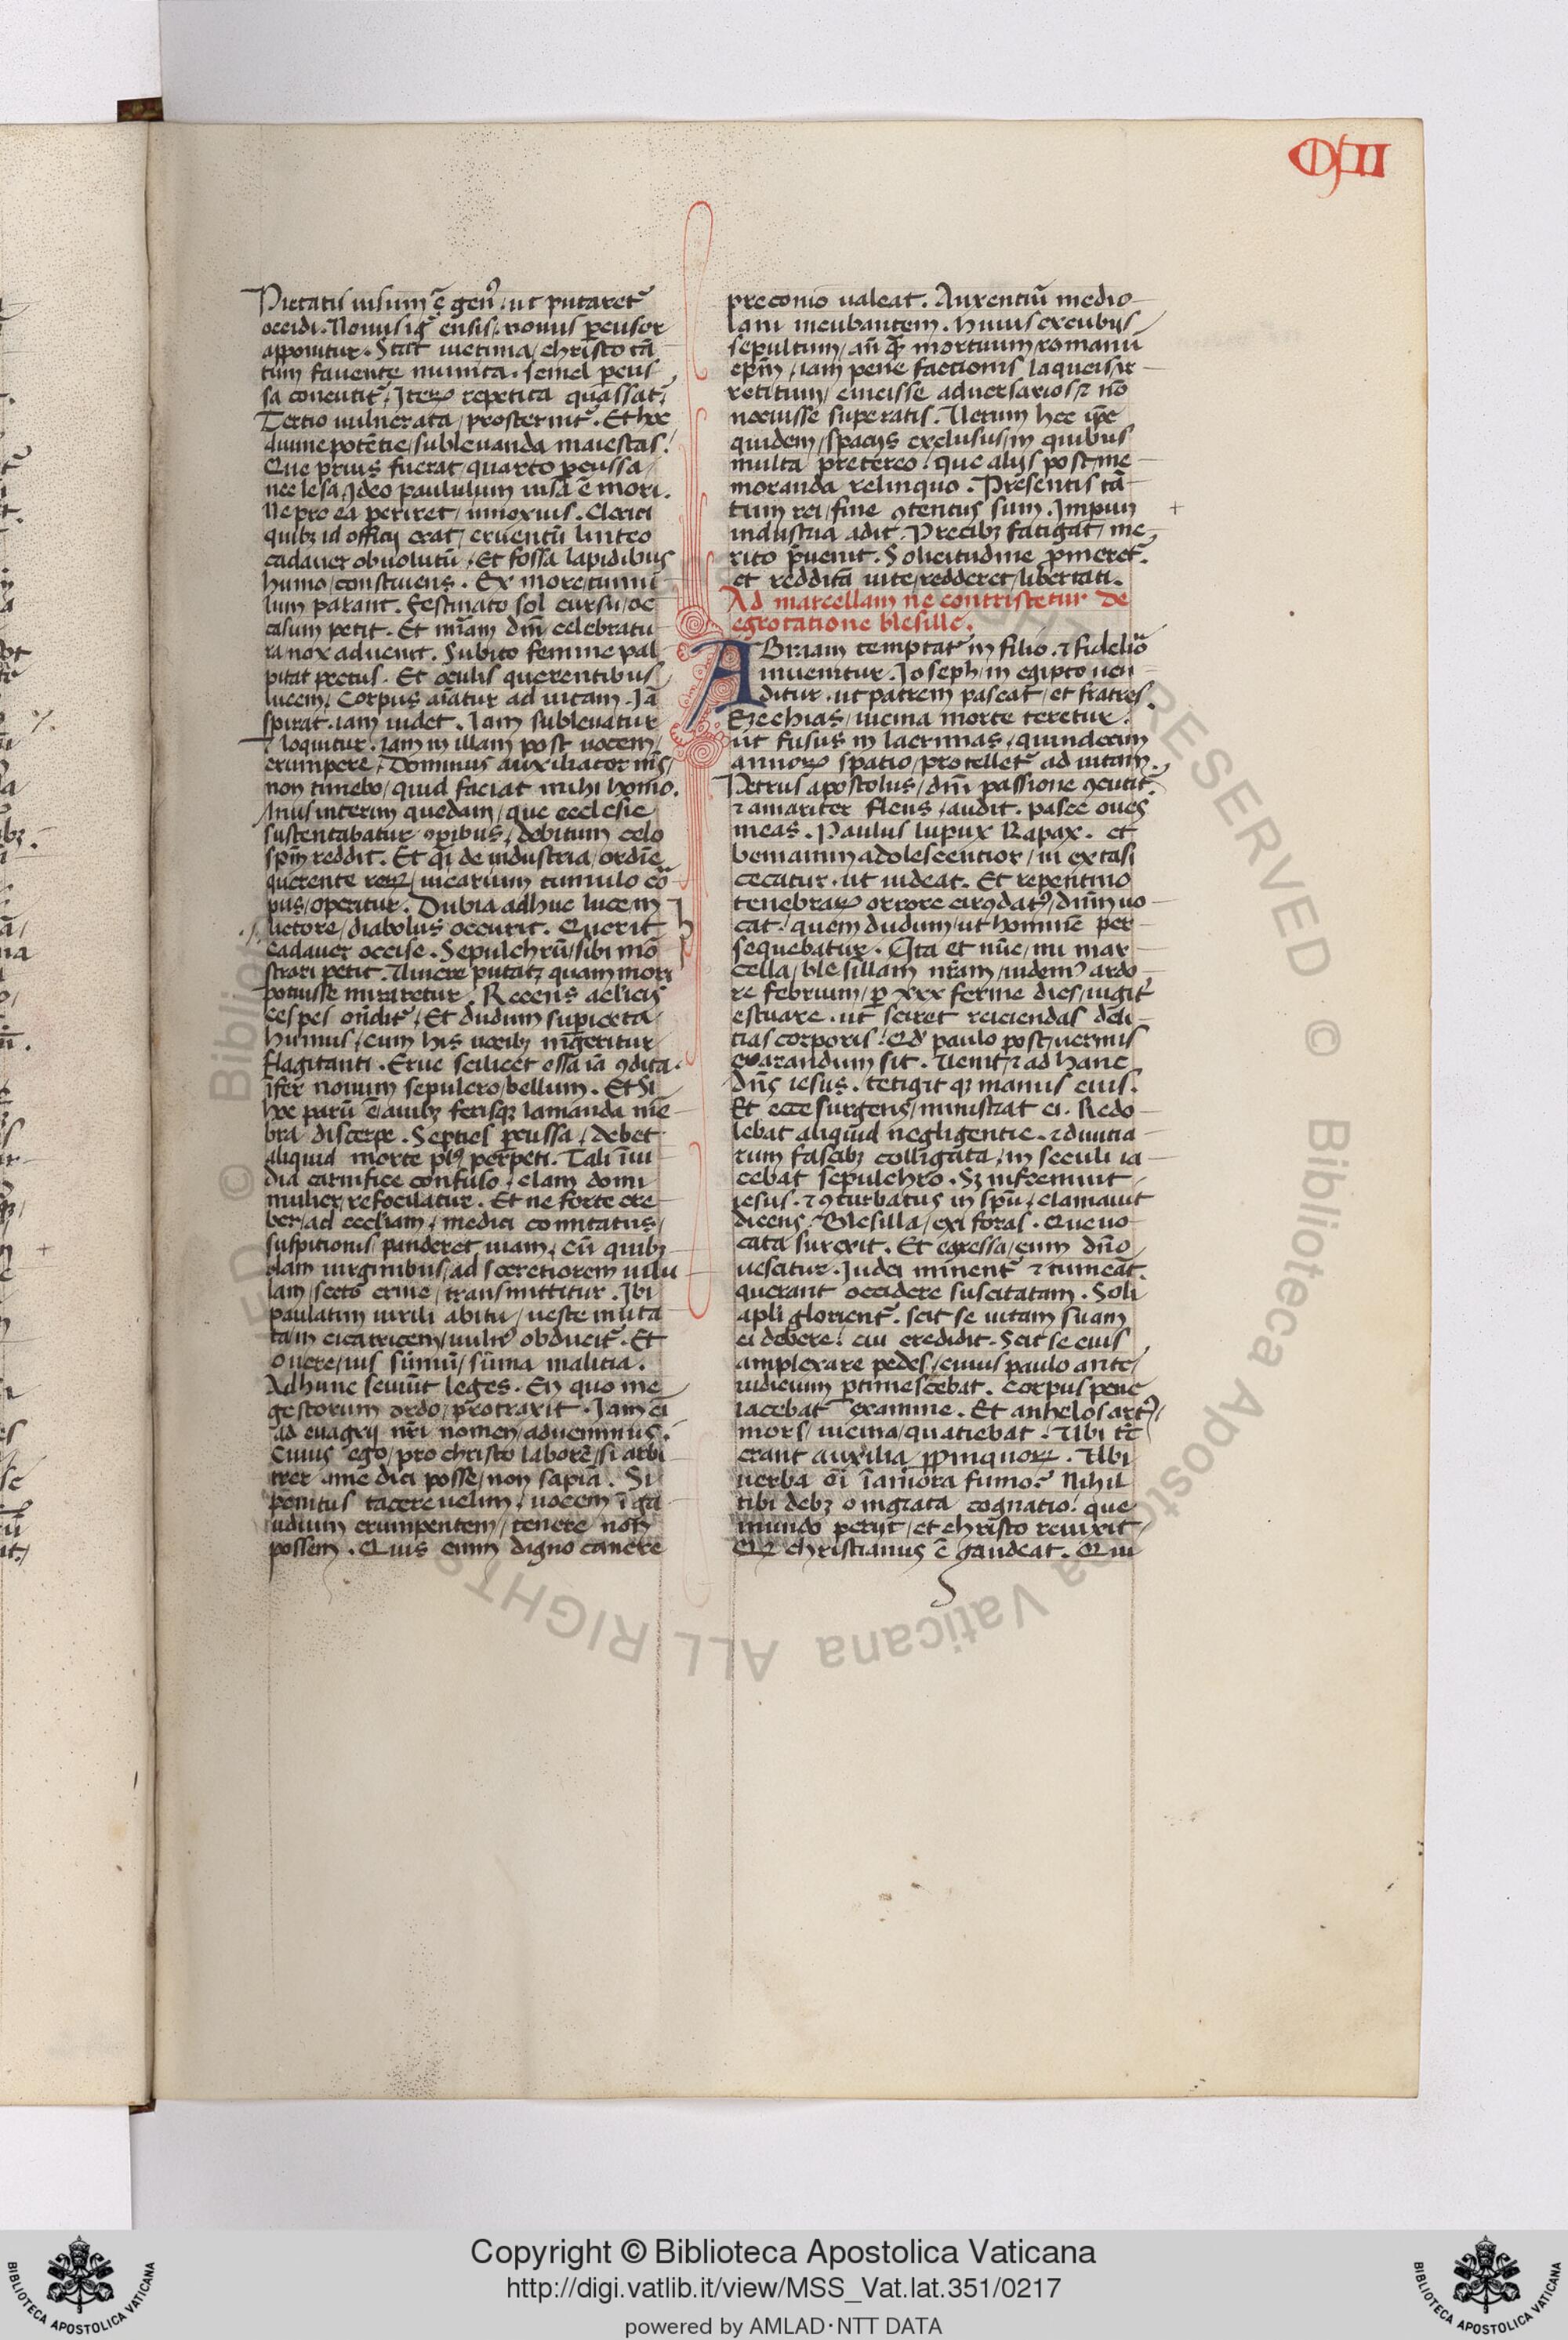 ꝏ II
Pietatis uisum ē gen᷒. ut putaret᷒
occidi. Nouus ig᷒ ensis. nouus ꝑcusor
apponitur. Stat uictima / christo tā
tum fauente munita. semel ꝑcus
sa concutit᷒. Iteꝝ repetita quassat᷒.
Tertio uulnerata / prosternit᷒. Et hoc
diuine potētie / subleuanda maiestas.
Que prius fuerat / quarto ꝑcussa /
nec lesa. Ideo paululum uisā ē mori.
Ne pro ea periret / innoxius. Clerici
quibꝫ id officij erat / cruentū linteo
cadauer obuolutū. Et fossa lapidibus
humo / construens. Ex more / tumu
lum parant. Festinato sol cursu / oc
casum petit. Et mīam dnī celebratu
ra nox aduenit. Subito femine pal
pitat pectus. Et oculis querentibus
lucem / Corpus aīatur ad uitam. Iā
spirat. iam uidet. Iam subleuatur
⁊ loquitur. iam in illam post uocem /
erumpere. Dominus auxiliator m̄s /
non timebo / quid faciat mihi homo.
Anus interim quedam / que ecclesie
sustentabatur opibus / debitum celo
spm̄ reddit. Et q̄i de industria / ordīe
querente reꝝ / uicarium tumulo co᷒
pus / operitur. Dubia adhuc lucem
uictore / diabolus occurit. Querit
cadauer occise. Sepulchrū / sibi mō
strari petit. Uiuere putat / quam mori
potuisse miraretur. Recens aeh̓ cis
cespes on̄dit᷒. Et dudum supiecta
humus / cum his uocibꝫ ingeritur
flagitanti. Erue scilicet ossa iā ꝯdita.
īfer nouum sepulcro / bellum. Et Si
hoc parū ē / auibꝫ ferisqꝫ lamanda mē
bra discerpe. Septies ꝑcussa / debet
aliquid morte pl᷒ perpeti. Tali īui
dia carnifice confuso / clam domi
mulier / refocilatur. Et ne forte cre
ber / ad eccliam / medici comitatus /
suspitionis / panderet uiam. cū quibꝫ
clam uirginibus / ad secretiorem uilu
lam / secto crine / transmittitur. Ibi
paulatim uirili abitu / ueste muta
ta / in cicatricem / uuln᷒ obducit᷒. Et
o uere / ius summū / sūma malitia.
Adhunc seuiūt leges. En quo me
gestorum ordo / protraxit. Iam ēi
ad euagrij nr̄i nomen / aduenimus.
Cuius ego / pro christo laborē / si arbi
trer / a me dici posse / non sapiā. Si
penitus tacere uelim / uocem ī ga
udium erumpentem / tenere non
possem. Quis enim digno canere
preconio ualeat. Auxentiū medio
lani incubantem. huius excubijs /
sepultum / an̄ q̄ mortuum / romanū
epm̄ / iam pene factionis laqueis ir
retitum / uicisse aduersarios / ⁊ nō
nocuisse superatis. Uerum hec ip̄e
quidem / spacijs exclusus / in quibus
multa pretereo / que alijs post me
moranda relinquo. Presentis tā
tum rei / fine ꝯtentus sum. Impun
industria adit. Precibꝫ fatigat / me
rito p̄uenit. Solicitudine ꝓmeret᷒.
et redditā uite / redderet / libertati.
Ad marcellam ne contristetur de
egrotatione blesille.
ABriam temptat᷒ in filio. ⁊ fidelio᷒
inuenitur. Ioseph / in egipto uen
ditur. ut patrem pascat / et fratres.
Ezechias / uicina morte teretur.
ut fusus in lacrimas / quindecim
annoꝝ spatio / protellet᷒ ad uitam.
Petrus apostolus / dnī passione ꝯcutit᷒.
⁊ amariter flens / audit. pasce oues
meas. Paulus lupux Rapax. et
beniamin adolescentior / in extasi
cecatur. ut uideat. Et repentino
tenebraꝝ orrore circ̄ūdat᷒ / dnm̄ uo
cat / quem dudum / ut hominē per
sequebatur. Ita et nūc / mi mar
cella / blesillam nr̄am / uidem᷒ ardo
re febrium / ꝑ xxx ferme dies / iugit᷒
estuare. ut sciret reiciendas deli
tias corporis / Qd᷒ paulo post / uermis
exarandum sit. Uenit / ⁊ ad hanc
dn̄s iesus. tetigit qꝫ manus eius.
Et ecce surgens / ministrat ei. Redo
lebat aliquid negligentie. ⁊ diuitia
rum fascibꝫ colligata / in seculi ia
cebat sepulchro. Sꝫ infremuit
iesus. ⁊ ꝯturbatus in spū / clamauit
dicens. Blesilla / exi foras. Que uo
cata surexit. Et egressa / cum dn̄o
uescitur. Iudei minent᷒ ⁊ tumeāt.
querant occidere suscitatam. Soli
apli glorient᷒. scit se uitam suam
ei debere / cui credidit. Scit se eius
amplexare pedes / cuius paulo ante /
iudicium ꝑtimescebat. Corpus pene
iacebat exanime. Et anhelos art᷒ /
mors / uicina / quatiebat. Ubi tc̄
erant auxilia ꝓpinquoꝝ. Ubi
uerba oī īaniora fumo? Nihil
tibi debꝫ o ingrata cognatio. que
mundo perijt / et christo reuixit /
Qui christianus ē gaudeat. Qui
Copyright © Biblioteca Apostolica Vaticana
http://digi.vatlib.it/view/MSS_Vat.lat.351/0217
powered by AMLAD·NTT DATA
BIBLIOTECA APOSTOLICA VATICANA
BIBLIOTECA APOSTOLICA VATICANA
© Biblioteca Apostolica Vaticana ALL RIGHTS RESERVED © Biblioteca Apostolica Vaticana